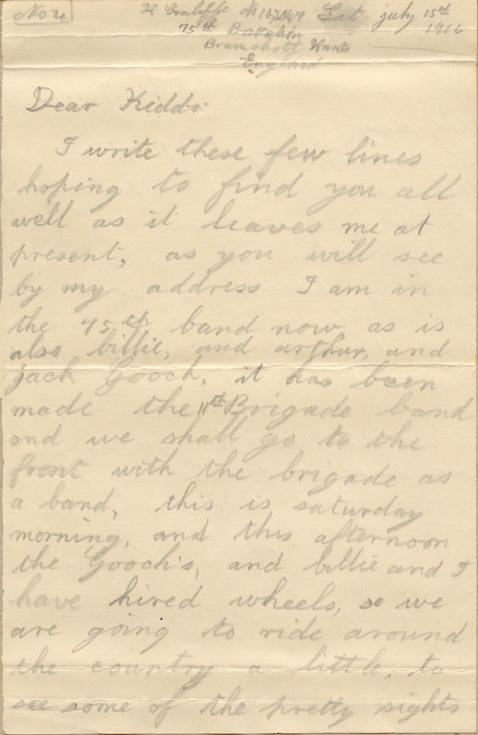 No 4
H Cunliffe Sat july 15th
75th Batalion 1916
Bramshott Hants
England
Dear Kidds
I write these few lines
hoping to find you all
well as it leaves me at
present, as you will see
by my address I am in
the 75th band now as is
also billie, and arthur, and
Jack Gooch, it has been
made the 11th Brigade band
and we shall go to the
front with the brigade as
a band, this is saturday
morning, and this afternoon
the Gooch's, and billie and I
have hired wheels, so we
are going to ride around
the country a little, to
see some of the pretty sights